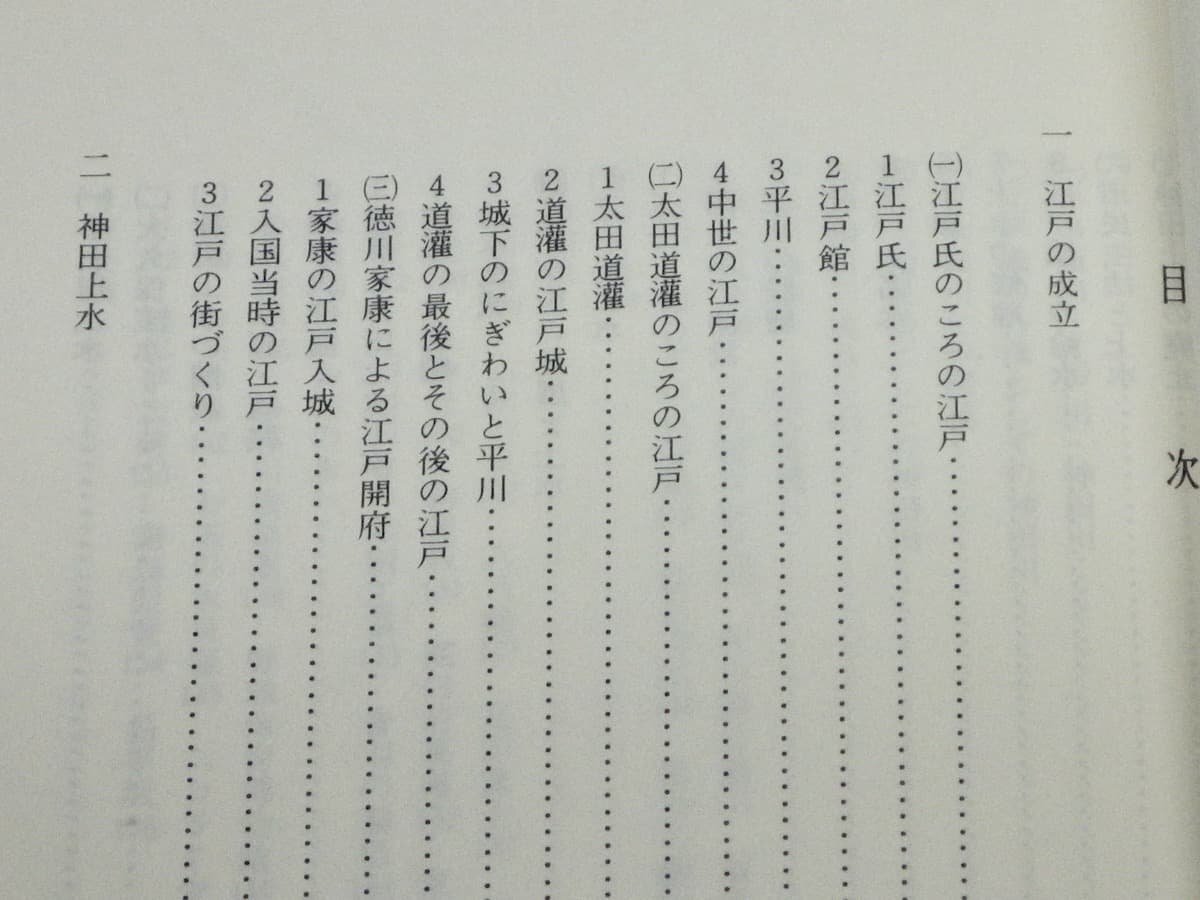 目次
一 江戸の成立
㈠江戸氏のころの江戸……………………
1江戸氏……………………
2江戸館……………………
3平川……………………
4中世の江戸……………………
㈡太田道灌のころの江戸……………………
1太田道灌……………………
2道灌の江戸城……………………
3城下のにぎわいと平川……………………
4道灌の最後とその後の江戸……………………
㈢徳川家康による江戸開府……………………
1家康の江戸入城……………………
2入国当時の江戸……………………
3江戸の街づくり……………………
二 神田上水